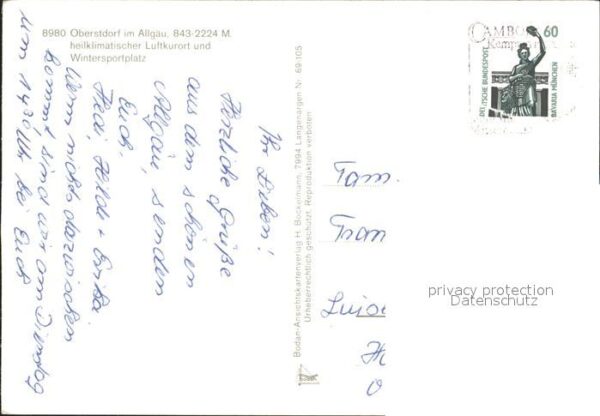 8980 Oberstdorf im Allgäu, 843-2224 M.
heilklimatischer Luftkurort und
Wintersportplatz
Ihr Lieben!
Herzliche Grüße
aus dem schönen
Allgäu, senden
Euch,
Heidi, Hilde + Erika.
Wenn nichts dazwischen
kommt sind wir am Dienstag
um 14 30 Uhr bei Euch
Bodan-Ansichtskartenverlag H. Bockelmann, 7994 Langenargen Nr. 69/105
Urheberrechtlich geschützt. Reproduktion verboten
Fam.
Fran
Luise
60
DEUTSCHE BUNDESPOST
BAVARIA MÜNCHEN
CAMBO
Kemp
privacy protection
Datenschutz